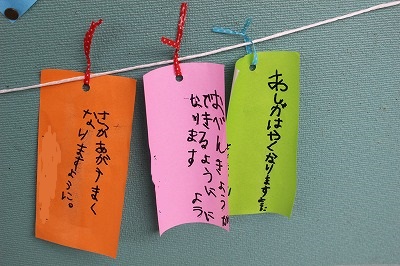 あしがはやくなりますように
おべんきょうが
できるように
なります
さかあがうまく
なりますように。